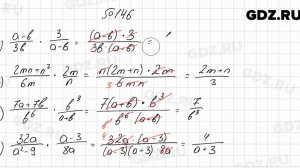 GDZ.RU
№146
) (a-b)/3b · 3/(a-b) = ((a-b)·3)/(3b(a-b)) = 1
) (2mn+n²)/6m · 2m/n = (n(2m+n)·2m)/(6m·n) = (2m+n)/3
) (7a+7b)/b⁶ · b³/(a+b) = (7(a+b)·b³)/(b⁶(a+b)) = 7/b³
) 32a/(a²-9) · (a-3)/8a = (32a·(a-3))/((a-3)(a+3)·8a) = 4/(a+3)
GDZ.RU